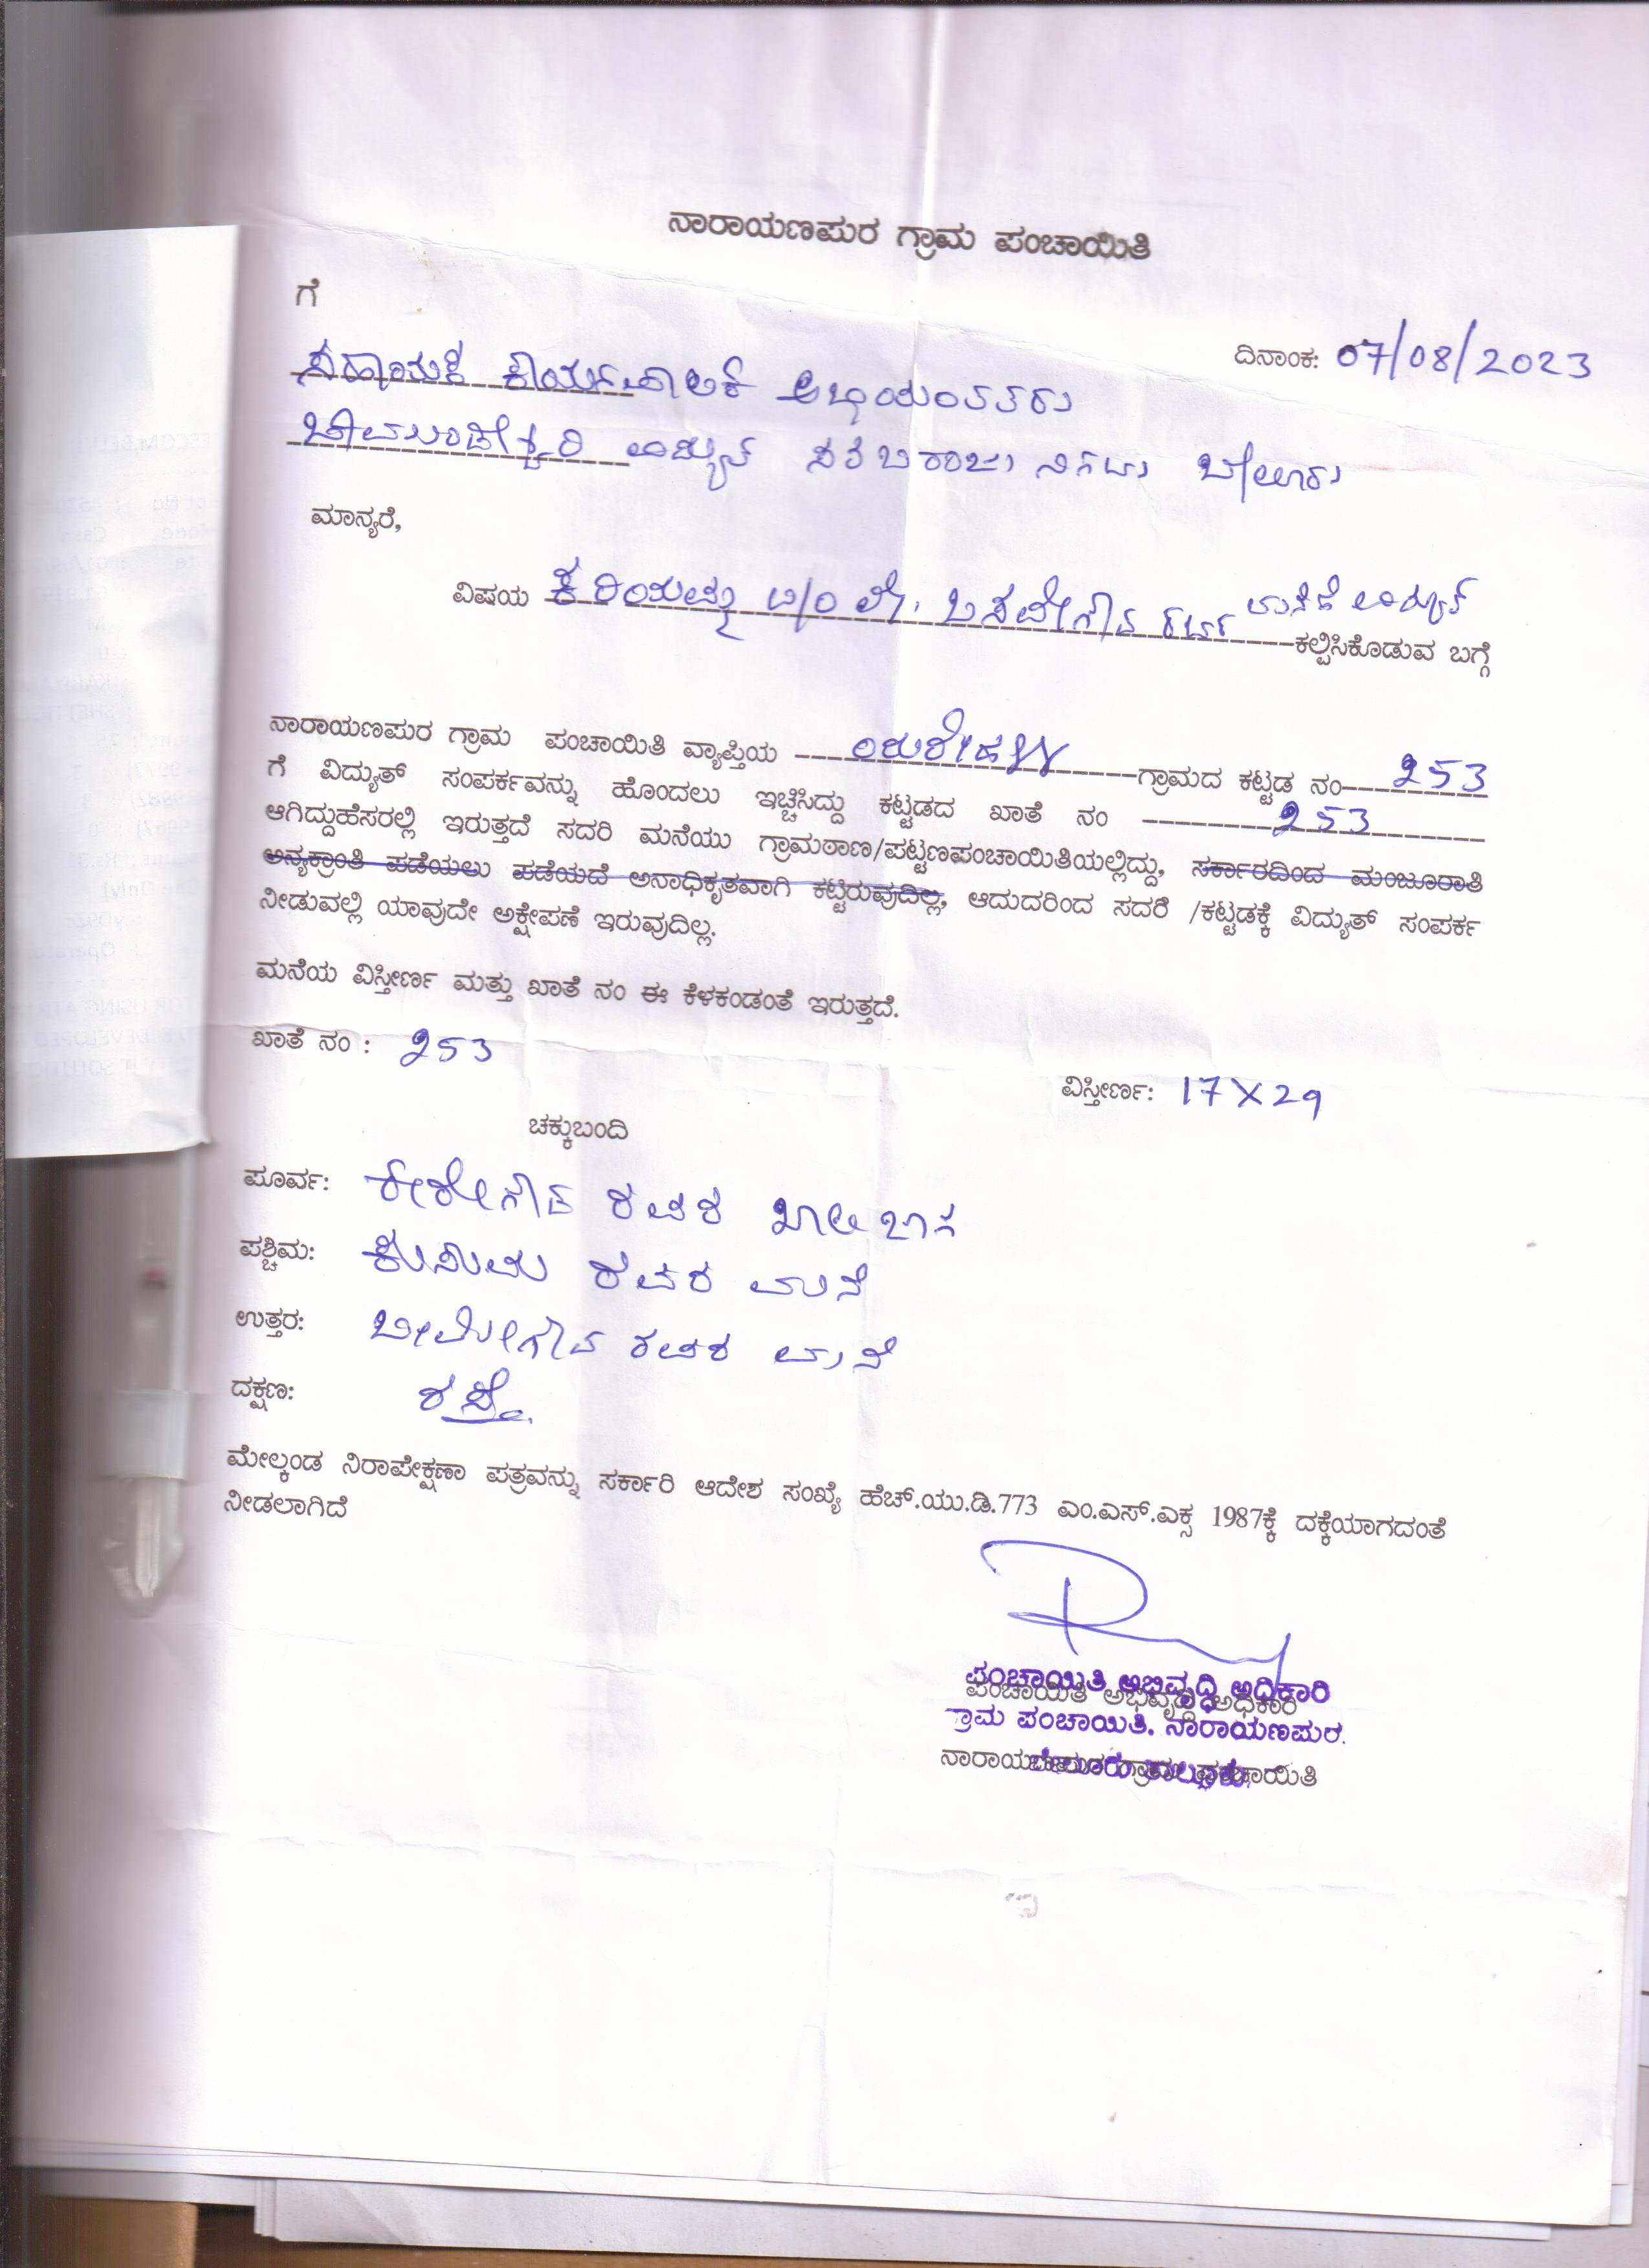 ನಾರಾಯಣಪುರ ಗ್ರಾಮ ಪಂಚಾಯಿತಿ
ಗೆ
ದಿನಾಂಕ: 07/08/2023
ಸಹಾಯಕ ಕಾರ್ಯಪಾಲಕ ಅಭಿಯಂತರರು
ವಿದ್ಯುತ್ ಸರಬರಾಜು ನಿಗಮ ಬೇಲೂರು
ಮಾನ್ಯರೆ,
ವಿಷಯ ಲೇ. ಬಸವೇಗೌಡ ವಿದ್ಯುತ್
ಕಲ್ಪಿಸಿಕೊಡುವ ಬಗ್ಗೆ
ನಾರಾಯಣಪುರ ಗ್ರಾಮ ಪಂಚಾಯಿತಿ ವ್ಯಾಪ್ತಿಯ ಗ್ರಾಮದ ಕಟ್ಟಡ ನಂ 253
ಗೆ ವಿದ್ಯುತ್ ಸಂಪರ್ಕವನ್ನು ಹೊಂದಲು ಇಚ್ಛಿಸಿದ್ದು ಕಟ್ಟಡದ ಖಾತೆ ನಂ 253
ಆಗಿದ್ದುಹೆಸರಲ್ಲಿ ಇರುತ್ತದೆ ಸದರಿ ಮನೆಯು ಗ್ರಾಮಠಾಣ/ಪಟ್ಟಣಪಂಚಾಯಿತಿಯಲ್ಲಿದ್ದು, ಸರ್ಕಾರದಿಂದ ಮಂಜೂರಾತಿ
ಅನ್ಯಕ್ರಾಂತಿ ಪಡೆಯಲು ಪಡೆಯದೆ ಅನಾಧಿಕೃತವಾಗಿ ಕಟ್ಟಿರುವುದಿಲ್ಲ, ಆದುದರಿಂದ ಸದರಿ /ಕಟ್ಟಡಕ್ಕೆ ವಿದ್ಯುತ್ ಸಂಪರ್ಕ
ನೀಡುವಲ್ಲಿ ಯಾವುದೇ ಅಕ್ಷೇಪಣೆ ಇರುವುದಿಲ್ಲ.
ಮನೆಯ ವಿಸ್ತೀರ್ಣ ಮತ್ತು ಖಾತೆ ನಂ ಈ ಕೆಳಕಂಡಂತೆ ಇರುತ್ತದೆ.
ಖಾತೆ ನಂ : 253
ವಿಸ್ತೀರ್ಣ: 17X29
ಚಕ್ಕುಬಂದಿ
ಪೂರ್ವ: ರವರ ಖಾಲಿ ಜಾಗ
ಪಶ್ಚಿಮ: ರವರ ಮನೆ
ಉತ್ತರ: ರವರ ಮನೆ
ದಕ್ಷಣ: ರಸ್ತೆ
ಮೇಲ್ಕಂಡ ನಿರಾಪೇಕ್ಷಣಾ ಪತ್ರವನ್ನು ಸರ್ಕಾರಿ ಆದೇಶ ಸಂಖ್ಯೆ ಹೆಚ್.ಯು.ಡಿ.773 ಎಂ.ಎಸ್.ಎಕ್ಸ 1987ಕ್ಕೆ ದಕ್ಕೆಯಾಗದಂತೆ
ನೀಡಲಾಗಿದೆ
ಪಂಚಾಯಿತಿ ಅಭಿವೃದ್ಧಿ ಅಧಿಕಾರಿ
ಪಂಚಾಯಿತಿ ಅಭಿವೃದ್ಧಿ ಅಧಿಕಾರಿ
ಗ್ರಾಮ ಪಂಚಾಯಿತಿ. ನಾರಾಯಣಪುರ.
ನಾರಾಯಣಪುರ ಗ್ರಾಮ ಪಂಚಾಯಿತಿ
ಬೇಲೂರು ತಾಲ್ಲೂಕು